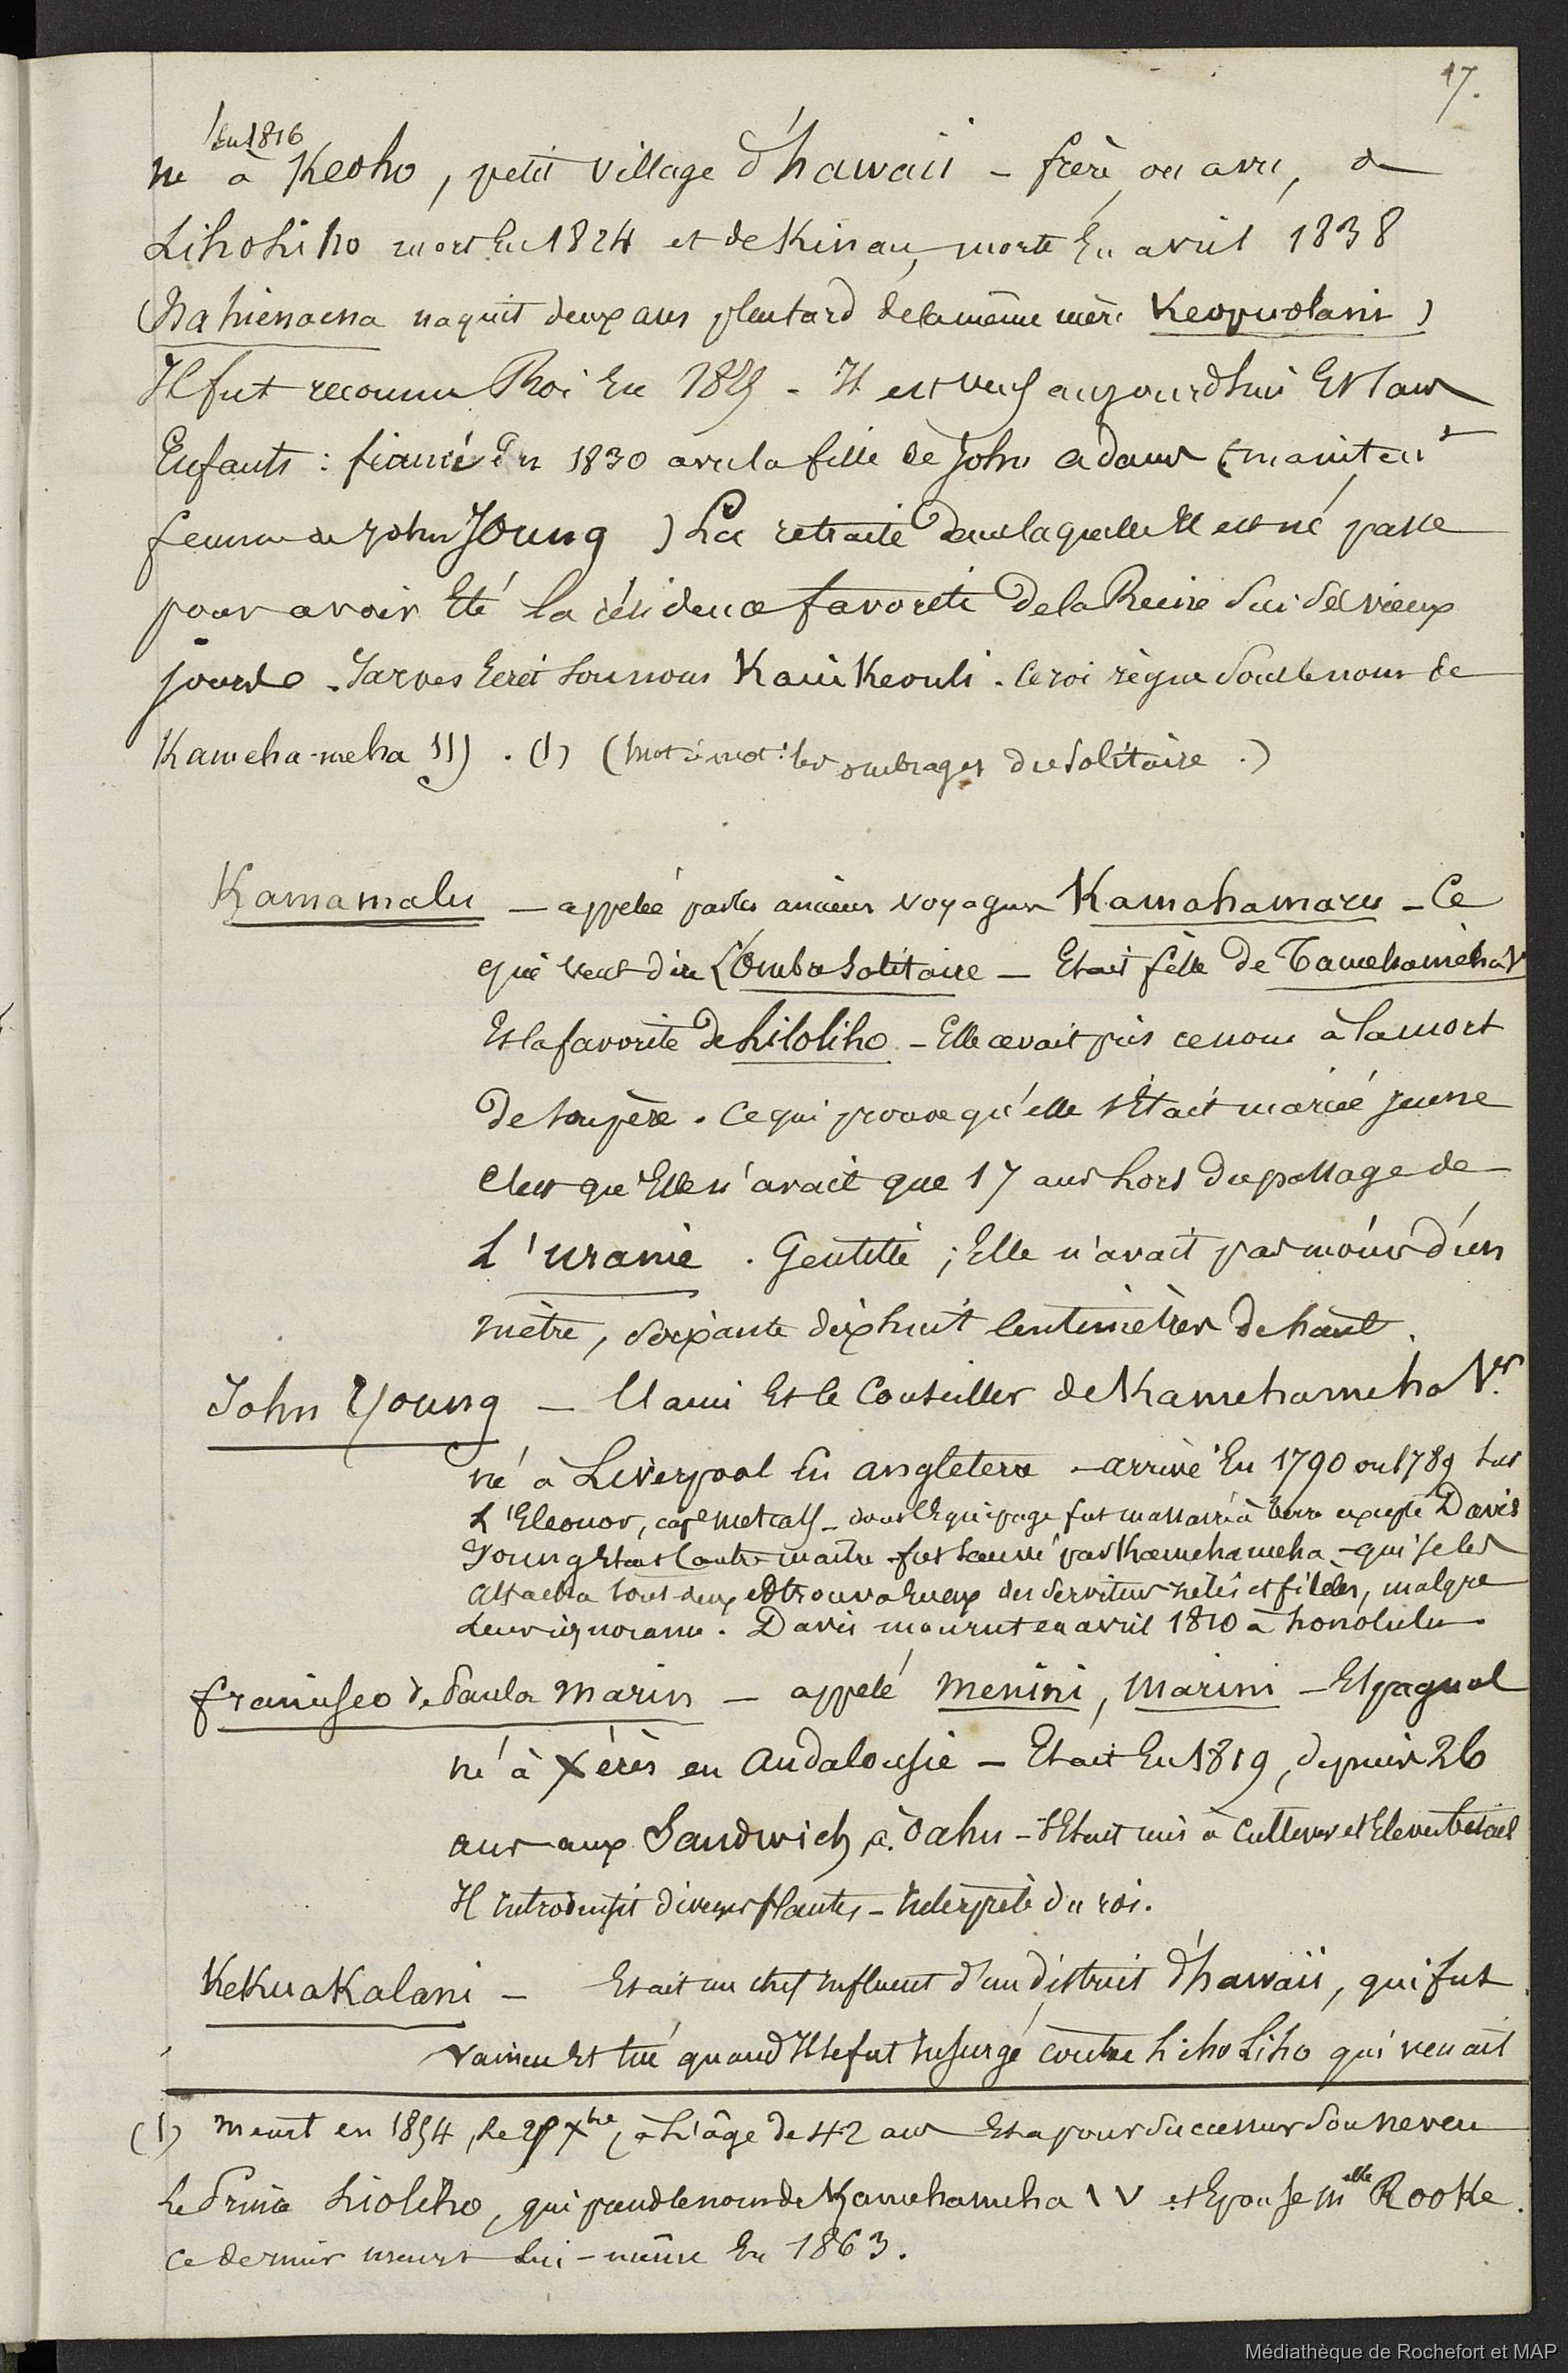 17.
né en 1816 à Keoho, petit village d'hawaii – frère, ou avri, de
Liholiho mort En 1824 et de Kinau, morte En avril 1838
(Nahienaena naquit deux ans plus tard de la même mère Keopuolani)
Il fut reconnu Roi En 1825 - Il est veuf aujourd'hui Et sans
Enfants : fiancé En 1830 avec la fille de John adams
femme de John Young ) La retraite dans laquelle Il est né passe
pour avoir Eté la résidence favorite De la Reine sur ses vieux
jours. Jarves Ecrit son nom KauiKeouli. Ce roi règne sous le nom de
Kameha-meha III . (1) (mot à mot : les ombrages du Solitaire .)
Kamamalu — appelée par les anciens voyageurs Kamahamaru – Ce
qui veut dire L'Ombre Solitaire — Etait fille de Tamehameha 1er
Et la favorite de Liloliho – Elle avait pris ce nom à la mort
De son père. Ce qui prouve qu'elle s'Etait mariée jeune
C'est qu'Elle n'avait que 17 ans lors du passage de
L'uranie . Gentille ; Elle n'avait pas moins d'un
mètre, soixante dix huit centimètres de haut.
John Young — L'ami Et le Conseiller de Kamehameha 1er
né à Liverpool En angleterre – arrivé En 1790 ou 1789 sur
L'Eleonor, cape Metcalf – dont l'Equipage fut massacré à terre excepté Davis
Young Etant Contre-maitre fut sauvé par Kamehameha – qui se les
attacha tous deux et trouva En eux des serviteurs zélés et fidèles, malgré
leur ignorance. Davis mourut en avril 1810 à honolulu.
francisco de Paula Marin — appelé Menini, Marini – Espagnol
né à Xérès en Andalousie — Etait En 1819, depuis 26
ans aux Sandwich à Oahu – s'Etait mis à cultiver et Elever bétail
Il Introduisit diverses plantes – Interprète du roi.
KeKuaKalani — Etait un chef Influent d'un district d'hawaii, qui fut
vaincu Et tué quand Il se fut Insurgé contre Liholiho qui venait
(1) Meurt en 1854, le 15 Xbre, à L'âge de 42 ans Et a pour successeur son neveu
Le Prince Lioliho, qui prend le nom de Kamehameha IV et Epouse Melle Rooke.
Ce dernier meurt lui-même En 1863.
Médiathèque de Rochefort et MAP